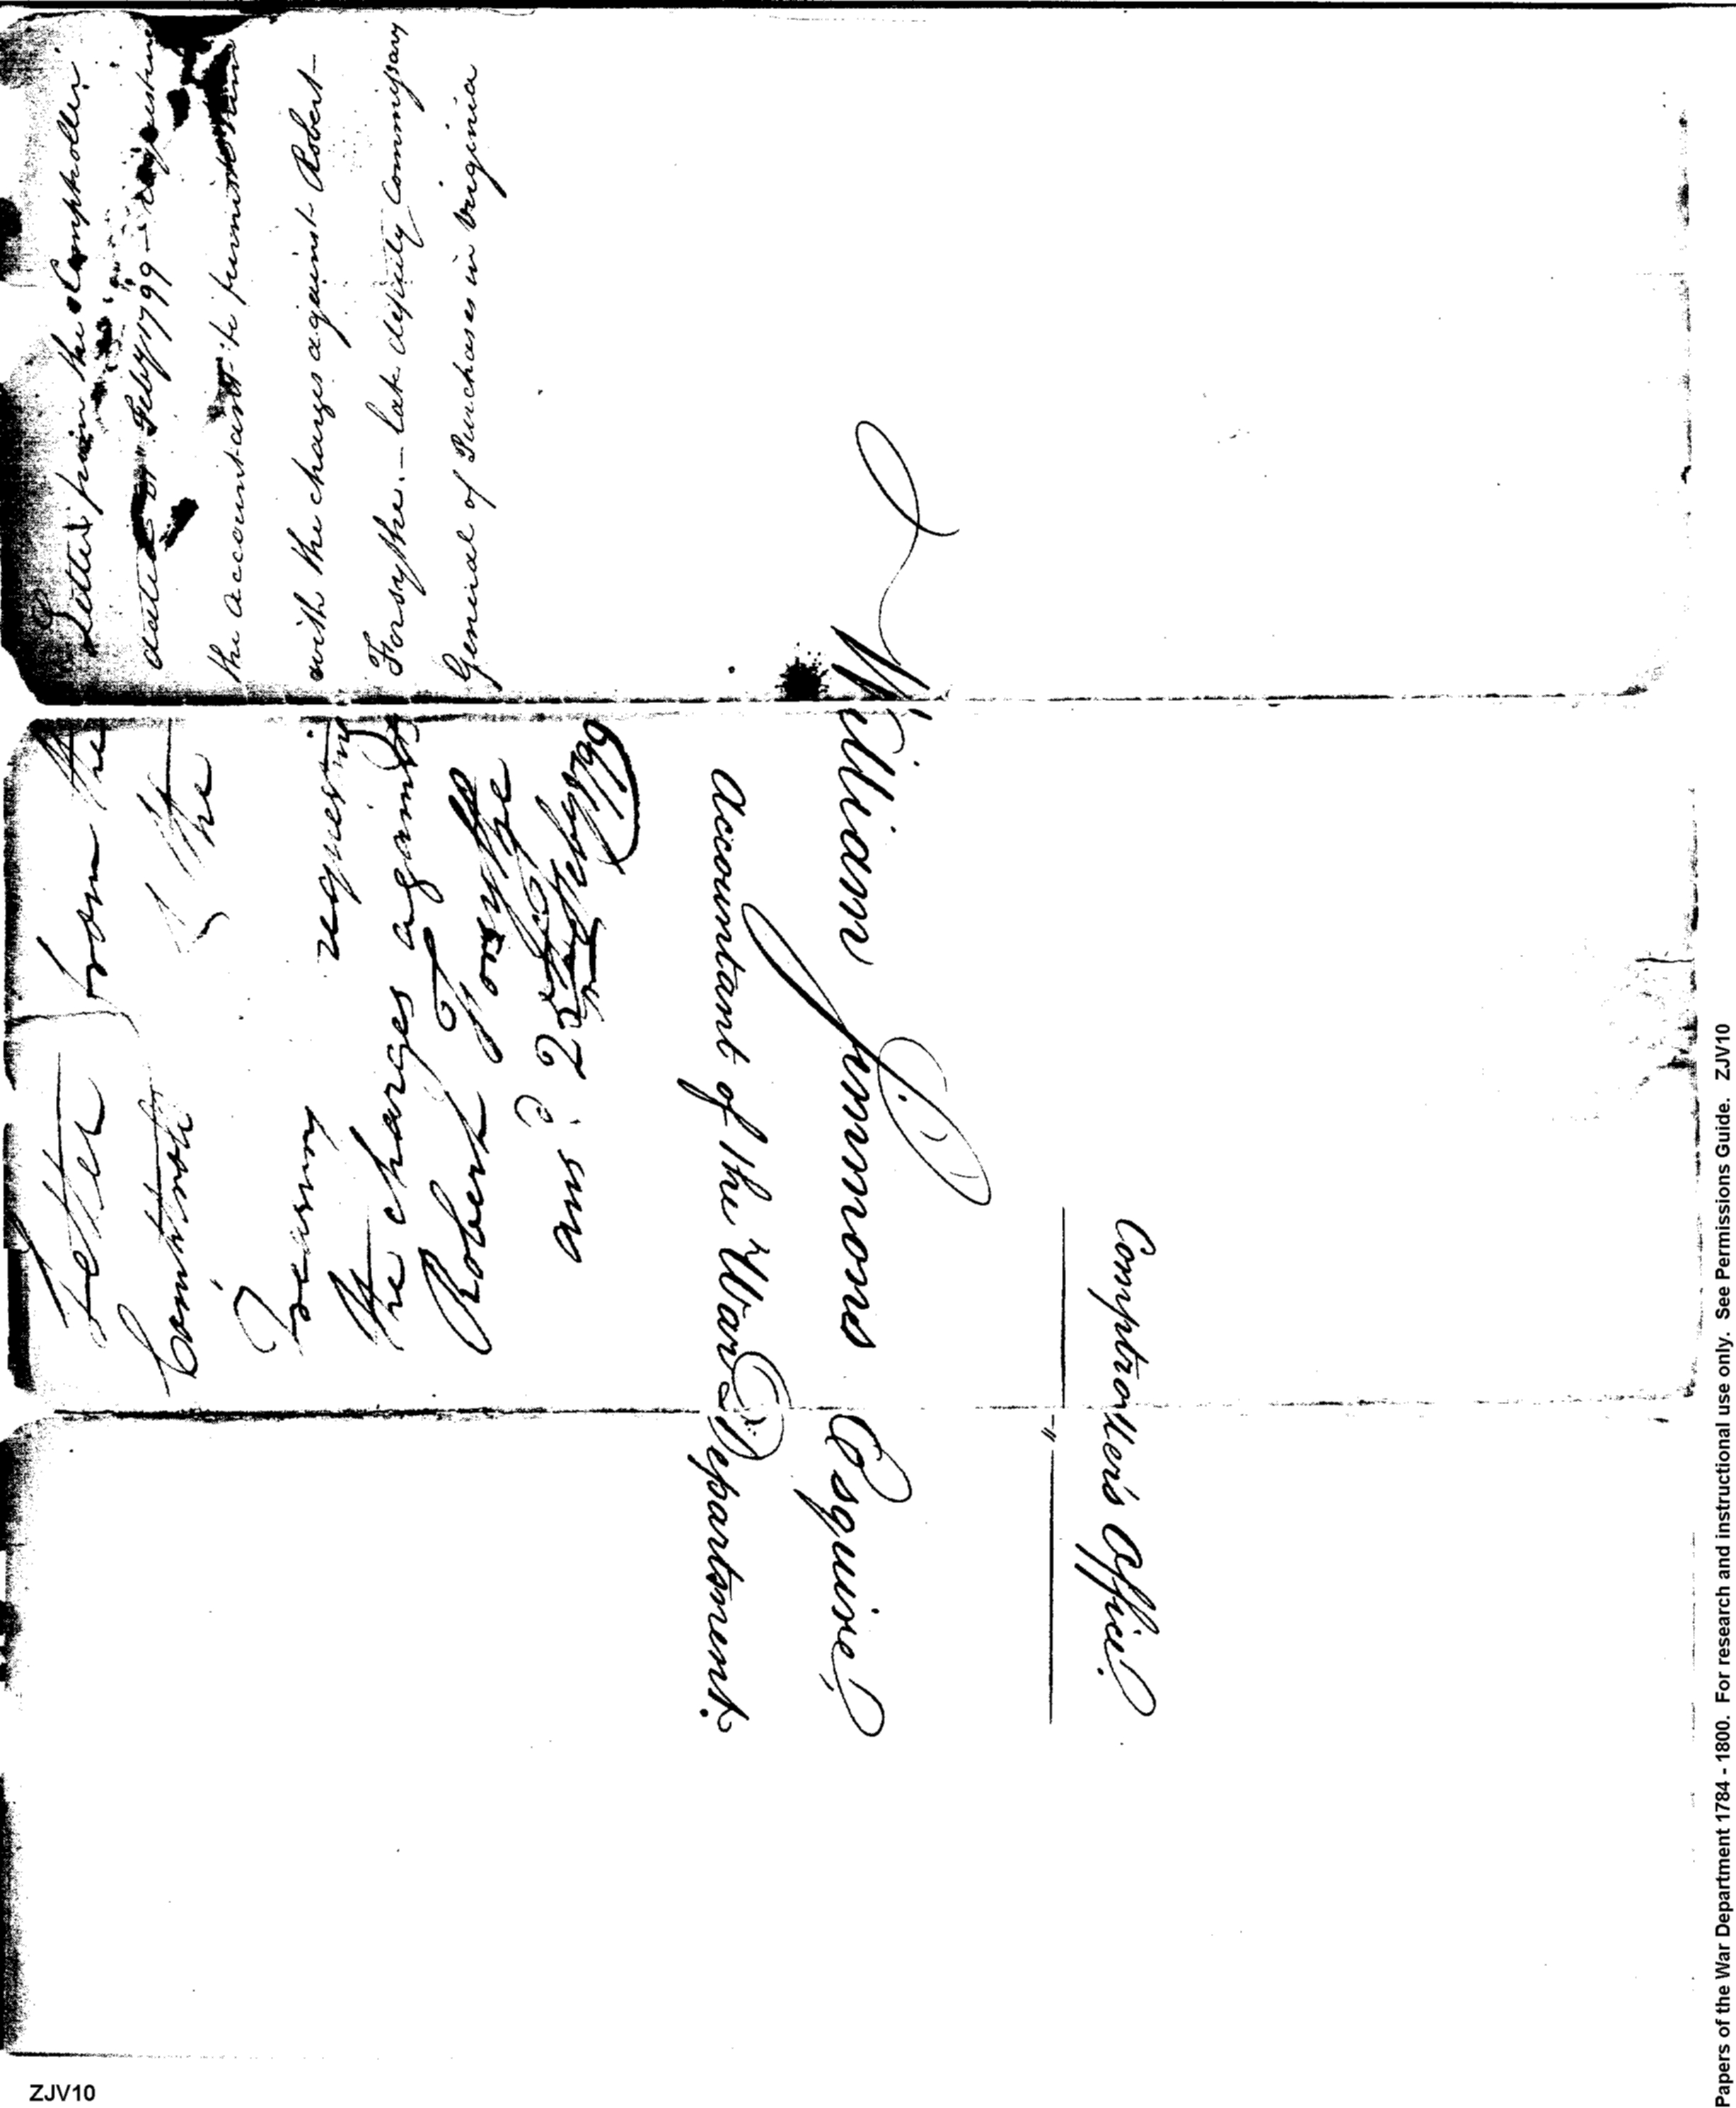 Letter from the Comptroller
dated Feby 1799 – requesting
the accountant to furnish him
with the charges against Robert
Forsythe. – late deputy Commissary
General of Purchases in Virginia
Letter from the
Comptroller of the
Treasury requesting
the charges against
Robert Forsythe
ans.d 25 Feby 1799
William Simmons Esquire
Accountant of the War Department.
Comptroller's Office
ZJV10
Papers of the War Department 1784 - 1800. For research and instructional use only. See Permissions Guide. ZJV10